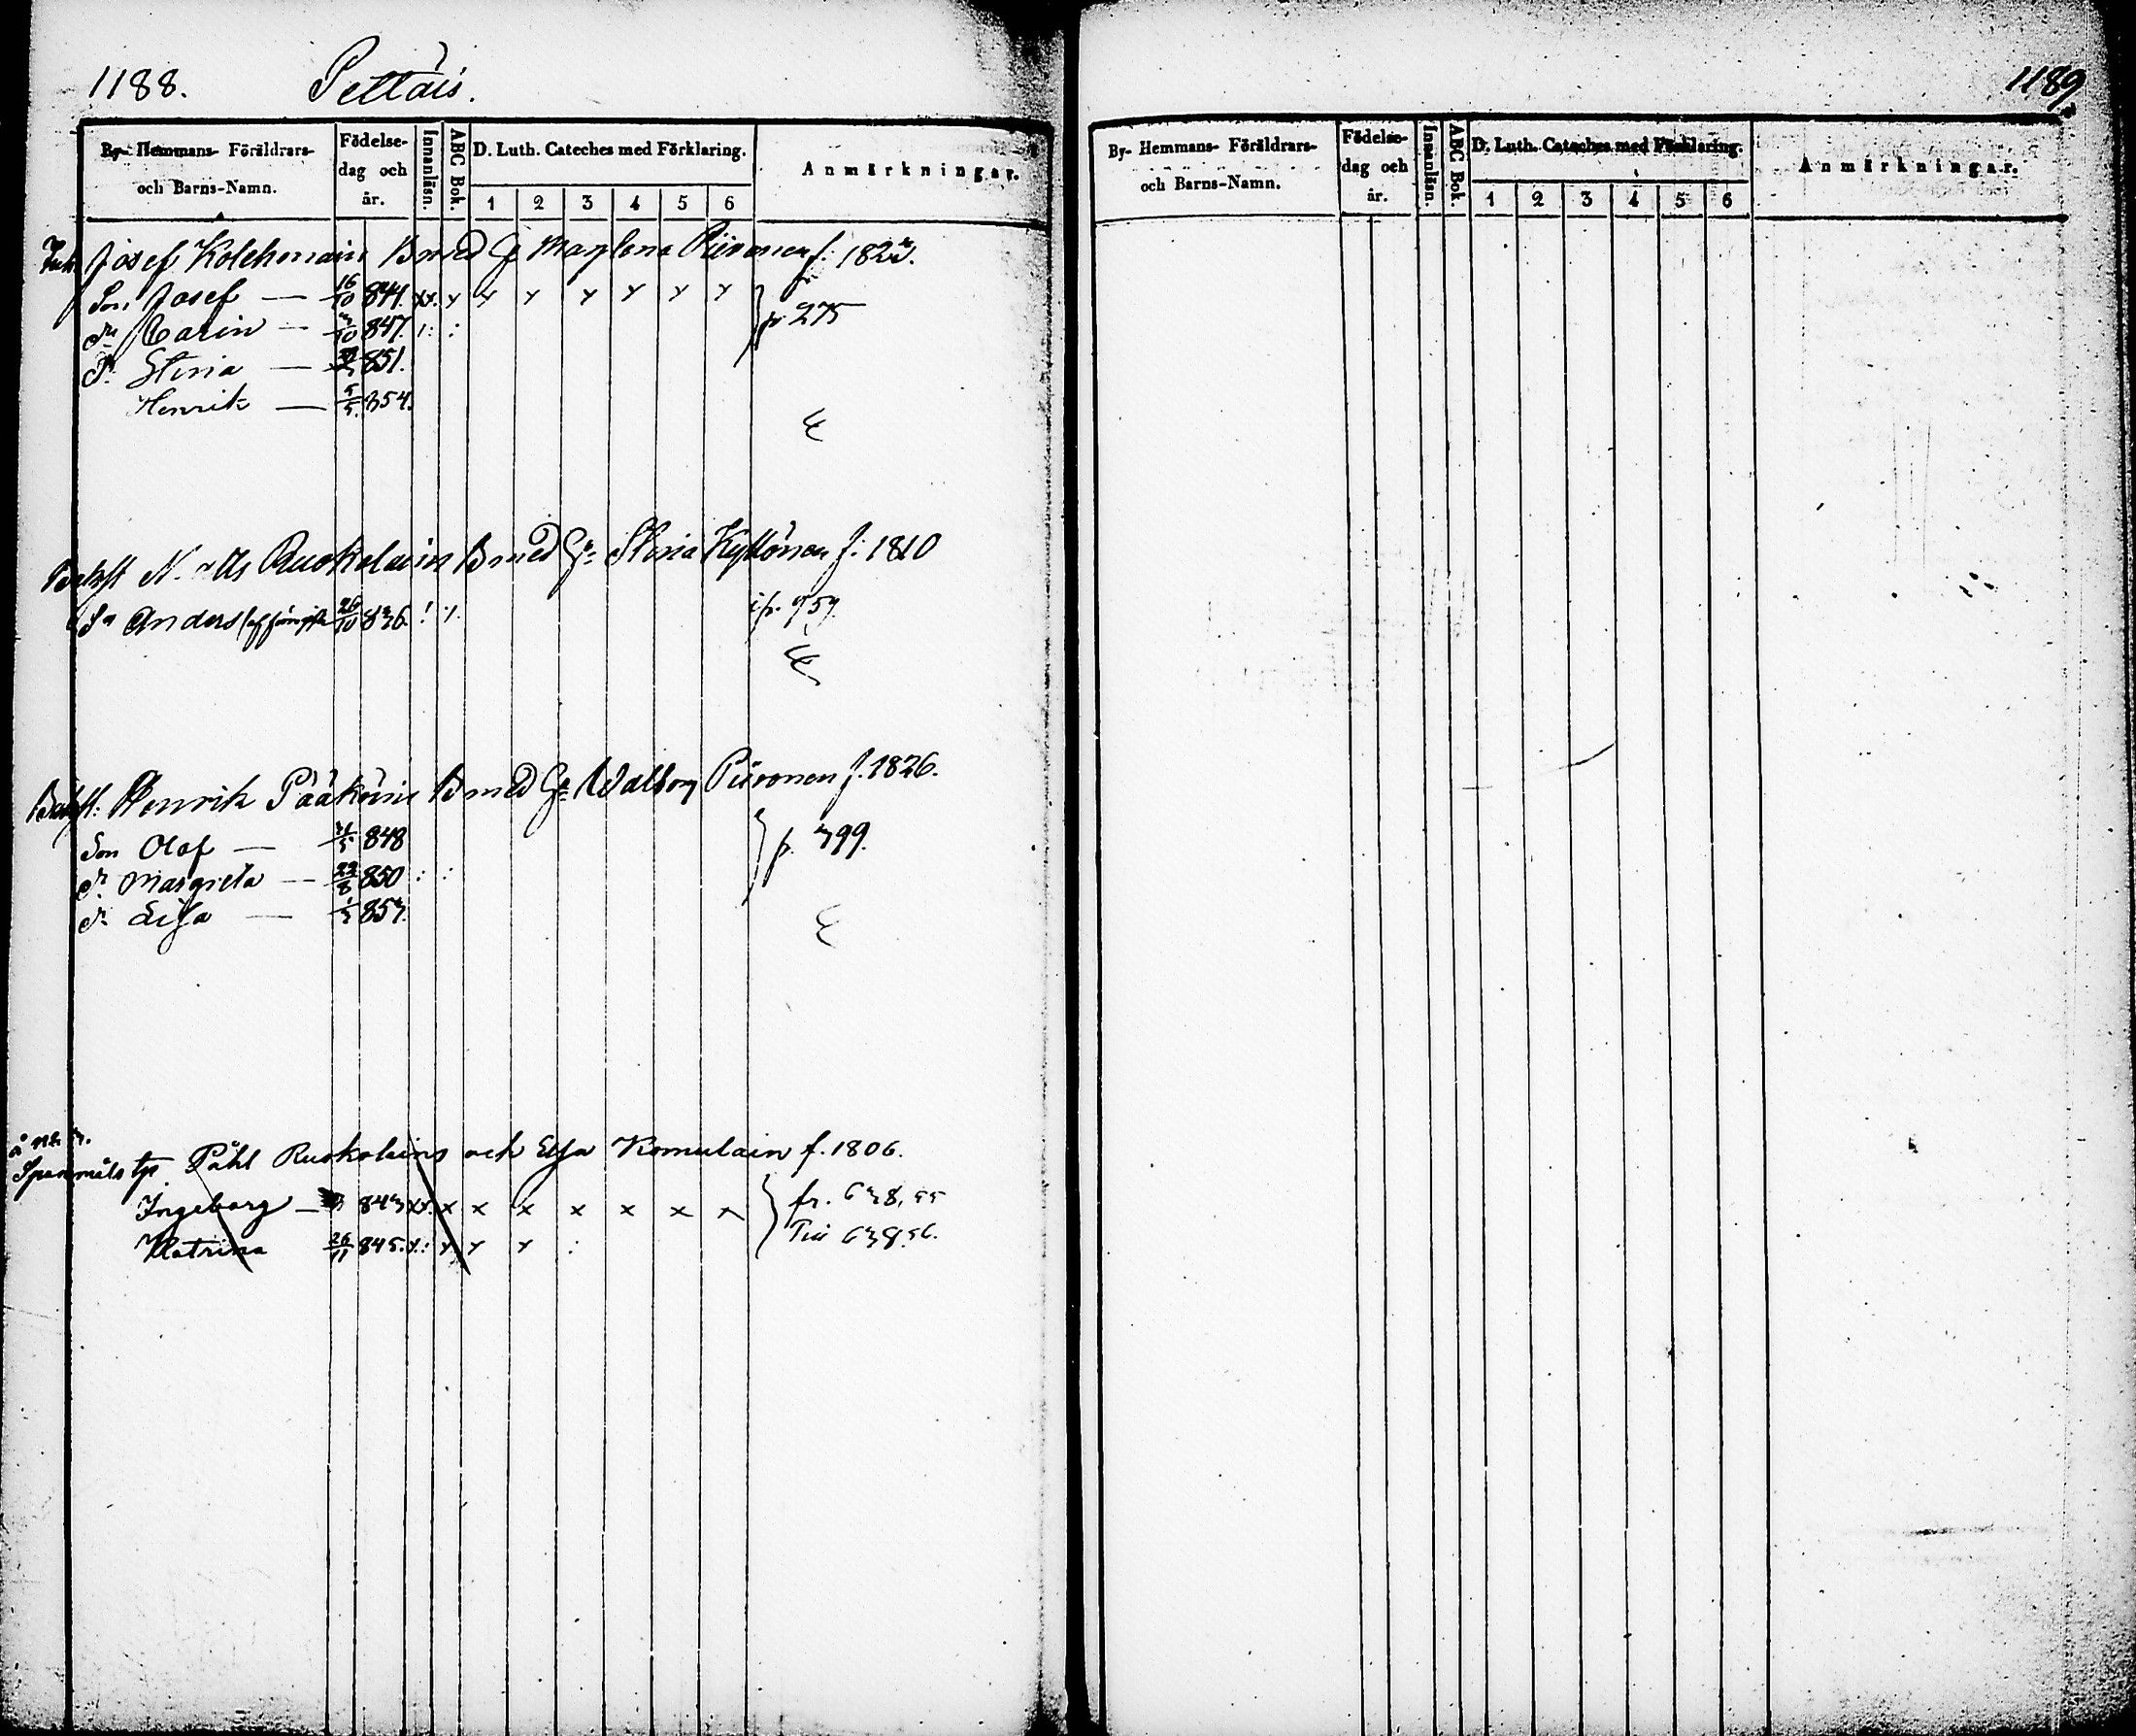 1188. Pettäis.
By- Hemmans- Föräldrars- och Barns-Namn.
Födelse- dag och år.
Innanläsn.
ABC Bok.
D. Luth. Cateches med Förklaring.
1 2 3 4 5 6
Anmärkningar.
Josef Kolehmain B med Maglena Piironen f. 1823.
Son Josef — 16/10 844. xx. x x x x x x x
Carin — 847. p 275
Stina — 851.
Henrik — 5/5. 854.
Ruokolain B med Stina Kyllönen f. 1810
Sn Anders 26/10 836. p. 959.
Henrik Pääköin B med Walborg Piironen f. 1826.
Son Olof — 848 p. 399.
Margreta — 23/8 850 : :
Lisa — 853.
Påhl Ruokolain och Elsa Komulain f. 1806.
Ingeborg — 843 xx. x x x x x x x fr. 638, 55
Katrina 26/11 845. x: x x x : Till 638, 56.
1189
By- Hemmans- Föräldrars- och Barns-Namn.
Födelse- dag och år.
Innanläsn.
ABC Bok.
D. Luth. Cateches med Förklaring.
1 2 3 4 5 6
Anmärkningar.